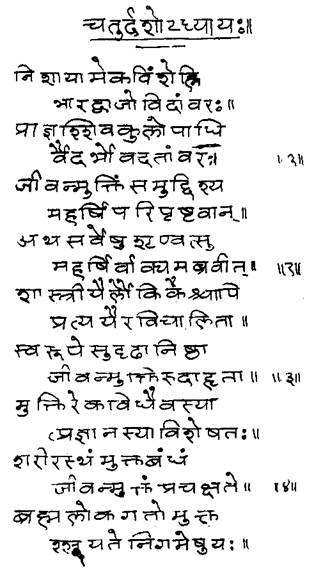 चतुर्दशोऽध्यायः॥
निशायामेकविंशेऽह्नि
भारद्वाजो विदांवरः॥
प्राज्ञश्शिवकुलोपाधि
र्वैदर्भो वदतांवरः॥ ॥१॥
जीवन्मुक्तिं समुद्दिश्य
महर्षिं परिपृष्टवान्।
अथ सर्वेषु शृण्वत्सु
महर्षिर्वाक्यमब्रवीत्॥ ॥२॥
शास्त्रीयैर्लौकिकैश्चापि
प्रत्ययैरविचालिता॥
स्वरूपे सुदृढा निष्ठा
जीवन्मुक्तिरुदाहृता॥ ॥३॥
मुक्तिरेकविधैव स्या
त्प्रज्ञानस्याविशेषतः॥
शरीरस्थं मुक्तबंधं
जीवन्मुक्तं प्रचक्षते॥ ॥४॥
ब्रह्मलोकगतो मुक्त
श्श्रूयते निगमेषु यः॥